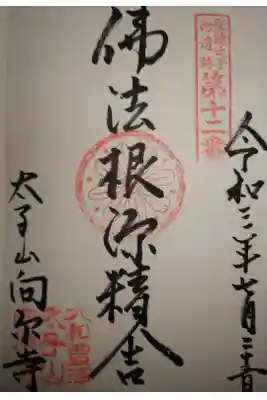 聖徳太子
御遺跡第十二番
令和三年七月二十
佛法根源精舎
太子山向原寺
大和豊浦
太子山